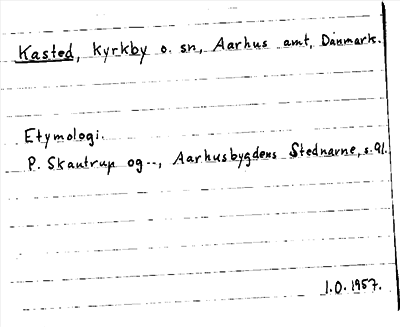 Kasted, Kyrkby o. sn, Aarhus amt, Danmark.
Etymologi.
P. Skautrup og --, Aarhusbygdens Stednavne, s. 91.
I.O. 1957.